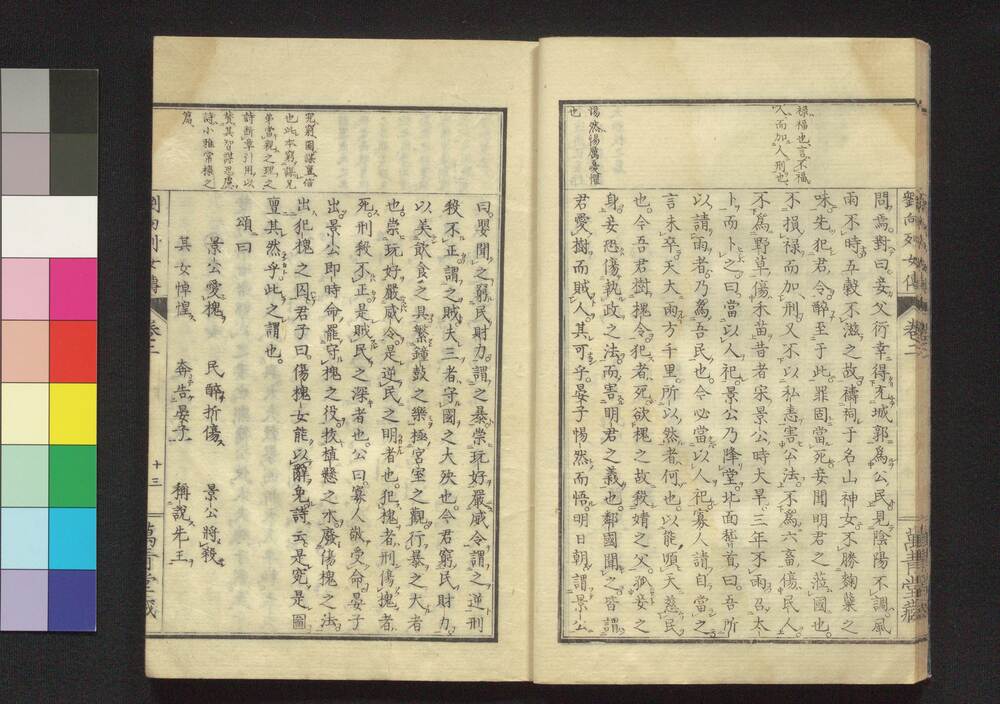 劉向列女傳 卷六
祿福也言不福
人而加人刑也
惕然惕厲憂懼
也
問焉對曰妾父衍幸得充城郭爲公民見陰陽不調風
雨不時五穀不滋之故禱祠于名山神女不勝麴糵之
味先犯君令醉至于此罪固當死妾聞明君之蒞國也
不損祿而加刑又不以私恚害公法不爲六畜傷民人
不爲野草傷禾苗昔者宋景公時大旱三年不雨召太
卜而卜之曰當以人祀景公乃降堂北面稽首曰吾所
以請雨者乃爲吾民也今必當以人祀寡人請自當之
言未卒天大雨方千里所以然者何也以能順天慈民
也今吾君樹槐令犯者死欲槐之故殺婧之父孤妾之
身妾恐傷執政之法而害明君之義也鄰國聞之皆謂
君愛樹而賊人其可乎晏子惕然而悟明日朝謂景公
究窮圖謀亶信
也此本窮謀兄
弟當親之理之
詩斷章引用以
賛其智謀思慮
詩小雅常棣之
篇
曰嬰聞之窮民財力謂之暴崇玩好嚴威令謂之逆刑
殺不正謂之賊夫三者守國之大殃也今君窮民財力
以美飲食之具繁鐘鼓之樂極宮室之觀行暴之大者
也崇玩好嚴威令是逆民之明者也犯槐者刑傷槐者
死刑殺不正是賊民之深者也公曰寡人敬受命晏子
出景公即時命罷守槐之役拔植懸之木廢傷槐之法
出犯槐之囚君子曰傷槐女能以辭免詩云是究是圖
亶其然乎此之謂也
頌曰
景公愛槐 民醉折傷 景公將殺
其女悼惶 奔告晏子 稱說先王
十三